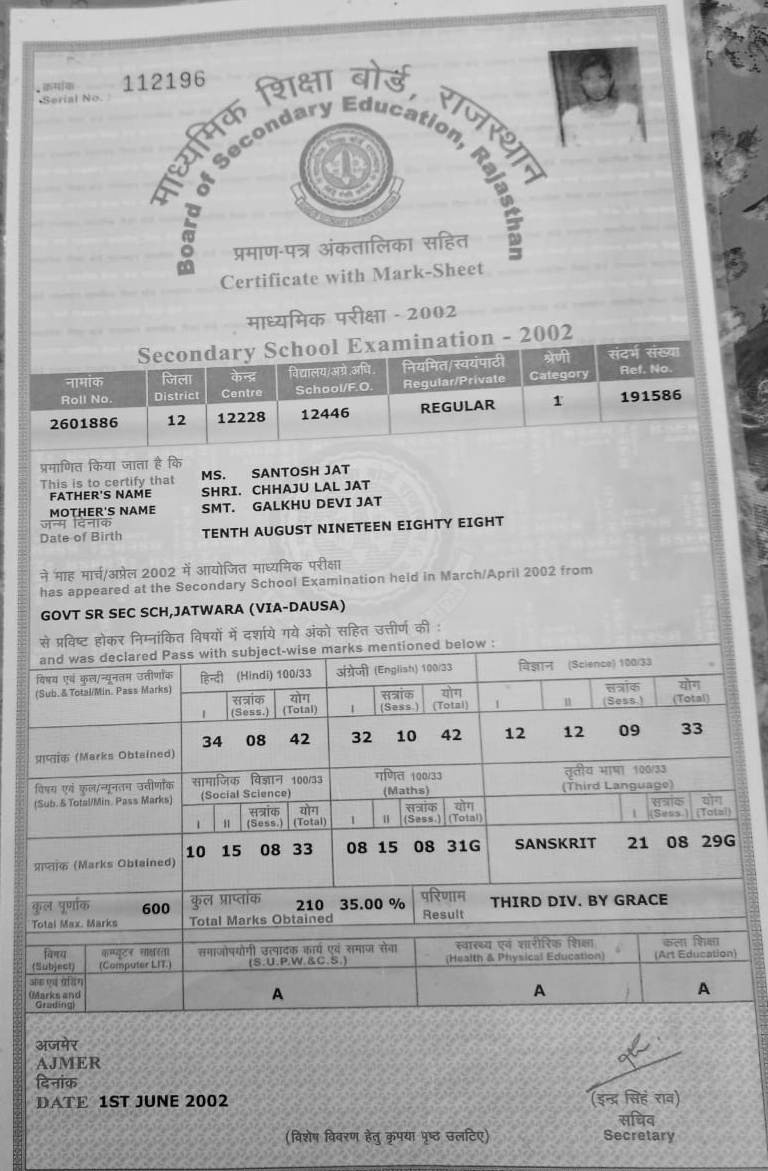 क्रमांक
Serial No. 112196
माध्यमिक शिक्षा बोर्ड, राजस्थान
Board of Secondary Education, Rajasthan
प्रमाण-पत्र अंकतालिका सहित
Certificate with Mark-Sheet
माध्यमिक परीक्षा - 2002
Secondary School Examination - 2002
नामांक जिला केन्द्र विद्यालय/अग्रे.अधि. नियमित/स्वयंपाठी श्रेणी संदर्भ संख्या
Roll No. District Centre School/F.O. Regular/Private Category Ref. No.
2601886 12 12228 12446 REGULAR 1 191586
प्रमाणित किया जाता है कि
This is to certify that MS. SANTOSH JAT
FATHER'S NAME SHRI. CHHAJU LAL JAT
MOTHER'S NAME SMT. GALKHU DEVI JAT
जन्म दिनांक
Date of Birth TENTH AUGUST NINETEEN EIGHTY EIGHT
ने माह मार्च/अप्रेल 2002 में आयोजित माध्यमिक परीक्षा
has appeared at the Secondary School Examination held in March/April 2002 from
GOVT SR SEC SCH,JATWARA (VIA-DAUSA)
से प्रविष्ट होकर निम्नांकित विषयों में दर्शाये गये अंको सहित उत्तीर्ण की :
and was declared Pass with subject-wise marks mentioned below :
विषय एवं कुल/न्यूनतम उत्तीर्णांक हिन्दी (Hindi) 100/33 अंग्रेजी (English) 100/33 विज्ञान (Science) 100/33
(Sub. & Total/Min. Pass Marks) सत्रांक योग सत्रांक योग सत्रांक योग
I (Sess.) (Total) I (Sess.) (Total) I II (Sess.) (Total)
प्राप्तांक (Marks Obtained) 34 08 42 32 10 42 12 12 09 33
विषय एवं कुल/न्यूनतम उत्तीर्णांक सामाजिक विज्ञान 100/33 गणित 100/33 तृतीय भाषा 100/33
(Sub. & Total/Min. Pass Marks) (Social Science) (Maths) (Third Language)
सत्रांक योग सत्रांक योग सत्रांक योग
I II (Sess.) (Total) I II (Sess.) (Total) I (Sess.) (Total)
प्राप्तांक (Marks Obtained) 10 15 08 33 08 15 08 31G SANSKRIT 21 08 29G
कुल पूर्णांक 600 कुल प्राप्तांक 210 35.00 % परिणाम THIRD DIV. BY GRACE
Total Max. Marks Total Marks Obtained Result
विषय कम्प्यूटर साक्षरता समाजोपयोगी उत्पादक कार्य एवं समाज सेवा स्वास्थ्य एवं शारीरिक शिक्षा कला शिक्षा
(Subject) (Computer LIT.) (S.U.P.W.&C.S.) (Health & Physical Education) (Art Education)
अंक एवं ग्रेडिंग
(Marks and Grading) A A A
अजमेर
AJMER
दिनांक
DATE 1ST JUNE 2002
(इन्द्र सिहं राव)
सचिव
Secretary
(विशेष विवरण हेतु कृपया पृष्ठ उलटिए)